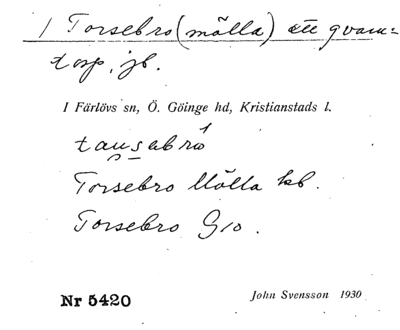 1 Torsebro (mölla) ett qvarn-
torp, jb.
I Färlövs sn, Ö. Göinge hd, Kristianstads l.
tau̯sebrö
Torsebro Mölla kb.
Torsebro G10.
Nr 5420
John Svensson 1930